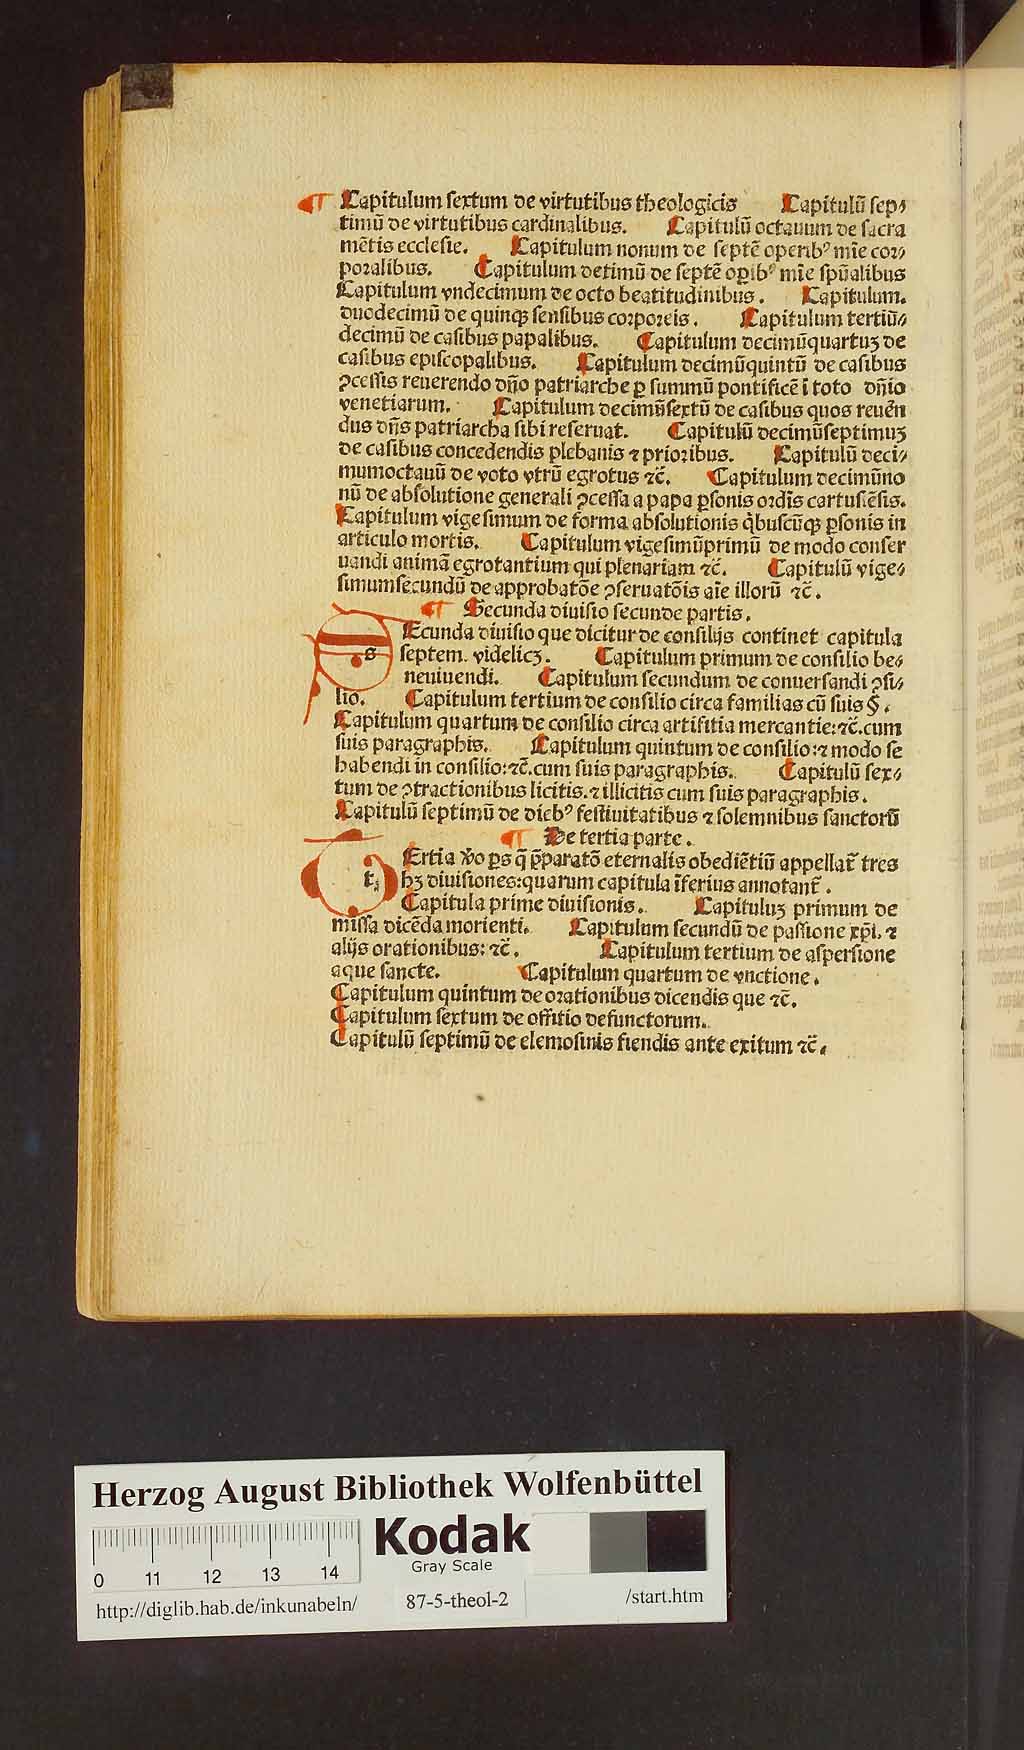 ¶ Capitulum ſextum de virtutibus theologicis Capitulū ſep⸗
timū de virtutibus cardinalibus. Capitulū octauum de ſacra
mētis eccleſie. Capitulum nonum de ſeptē operibꝰ mīe cor⸗
poralibus. Capitulum detimū de ſeptē oꝑibꝰ mīe ſpūalibus
Capitulum vndecimum de octo beatitudinibus. Capitulum.
duodecimū de quinqꝫ ſenſibus corporeis. Capitulum tertiū⸗
decimū de caſibus papalibus. Capitulum decimūquartuꝫ de
caſibus epiſcopalibus. Capitulum decimūquintū de caſibus
ꝯceſſis reuerendo dn̄o patriarche ꝑ ſummū pontificē ī toto dn̄io
venetiarum. Capitulum decimūſextū de caſibus quos reuēn
dus dn̄s patriarcha ſibi reſeruat. Capitulū decimūſeptimuꝫ
de caſibus concedendis plebanis ⁊ prioribus. Capitulū deci⸗
mumoctauū de voto vtrū egrotus ⁊c̄. Capitulum decimūno
nū de abſolutione generali ꝯceſſa a papa ꝑſonis ordīs cartuſiēſis.
Capitulum vigeſimum de forma abſolutionis q̇buſcūqꝫ ꝑſonis in
articulo mortis. Capitulum vigeſimūprimū de modo conſer
uandi animā egrotantium qui plenariam ⁊c̄. Capitulū vige⸗
ſimumſecundū de approbatōe ꝯſeruatōis aīe illorū ⁊c̄.
¶ Secunda diuiſio ſecunde partis.
s Ecunda diuiſio que dicitur de conſilijs continet capitula
ſeptem. videlicꝫ. Capitulum primum de conſilio be⸗
neuiuendi. Capitulum ſecundum de conuerſandi ꝯſi⸗
lio. Capitulum tertium de conſilio circa familias cū ſuis §.
Capitulum quartum de conſilio circa artifitia mercantie: ⁊c̄. cum
ſuis paragraphis. Capitulum quintum de conſilio: ⁊ modo ſe
habendi in conſilio: ⁊c̄. cum ſuis paragraphis. Capitulū ſex⸗
tum de ꝯtractionibus licitis. ⁊ illicitis cum ſuis paragraphis.
Capitulū ſeptimū de diebꝰ feſtiuitatibus ⁊ ſolemnibus ſanctorū
¶ De tertia parte.
t Ertia v̊o ps q̄ p̄paratō eternalis obediētiū appellat̄ tres
hꝫ diuiſiones: quarum capitula īferius annotant̄.
Capitula prime diuiſionis. Capituluꝫ primum de
miſſa dicēda morienti. Capitulum ſecundū de paſſione xp̄i. ⁊
alijs orationibus: ⁊c̄. Capitulum tertium de aſperſione
aque ſancte. Capitulum quartum de vnctione.
Capitulum quintum de orationibus dicendis que ⁊c̄.
Capitulum ſextum de offitio defunctorum.
Capitulū ſeptimū de elemoſinis fiendis ante exitum ⁊c̄.
Herzog August Bibliothek Wolfenbüttel
Kodak
Gray Scale
0 11 12 13 14
http://diglib.hab.de/inkunabeln/ 87-5-theol-2 /start.htm